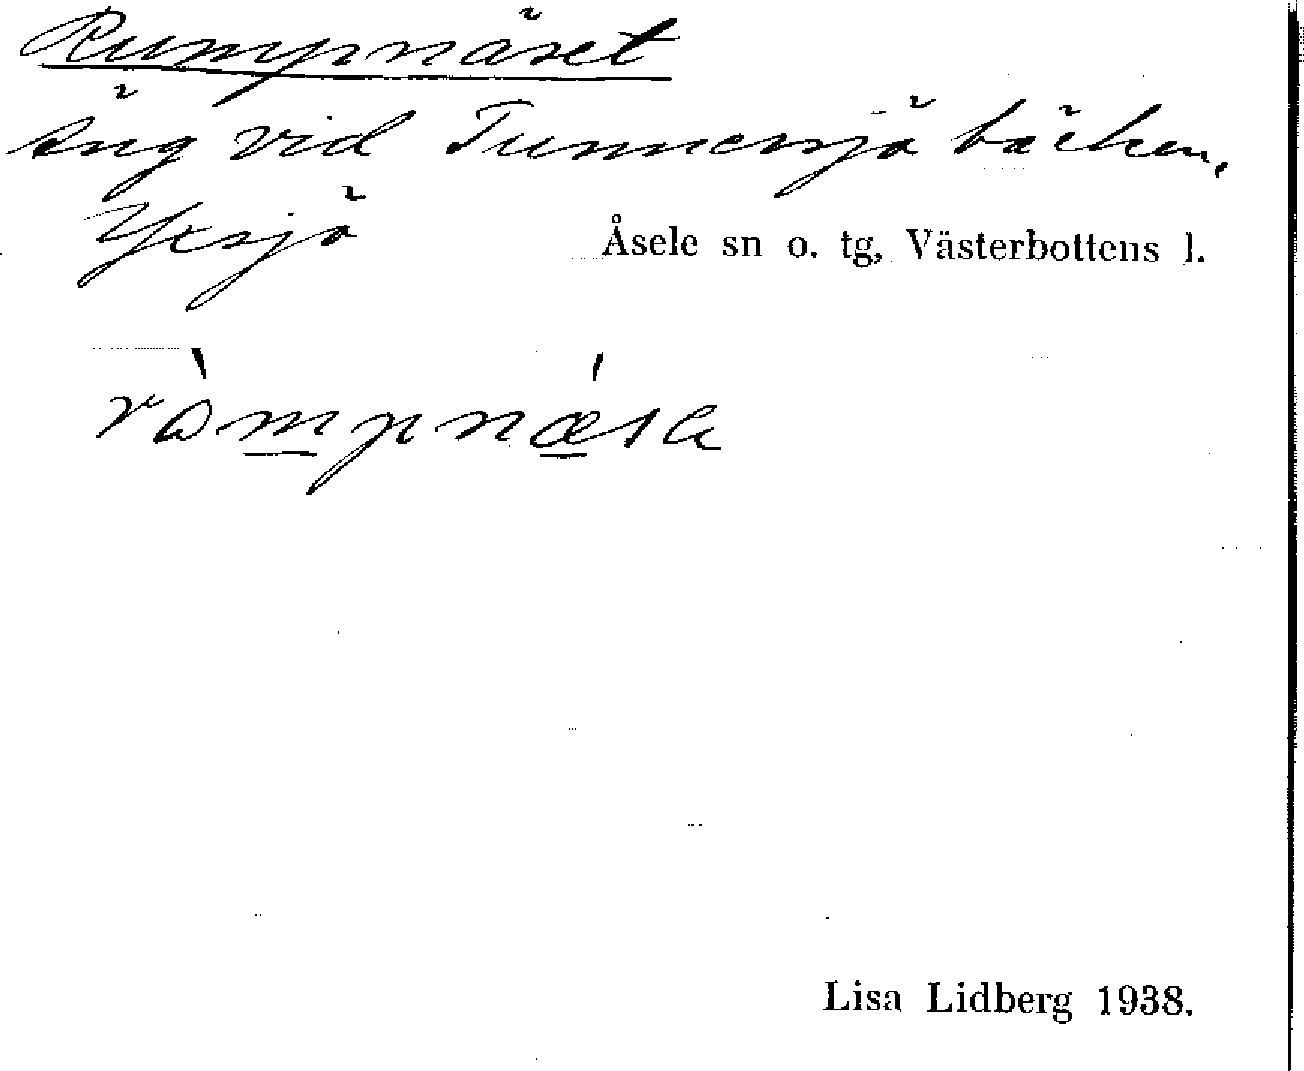 Rumpnäset
Äng vid Tunnersjöbäcken,
Yxsjö Åsele sn o. tg, Västerbottens l.
Lisa Lidberg 1938.